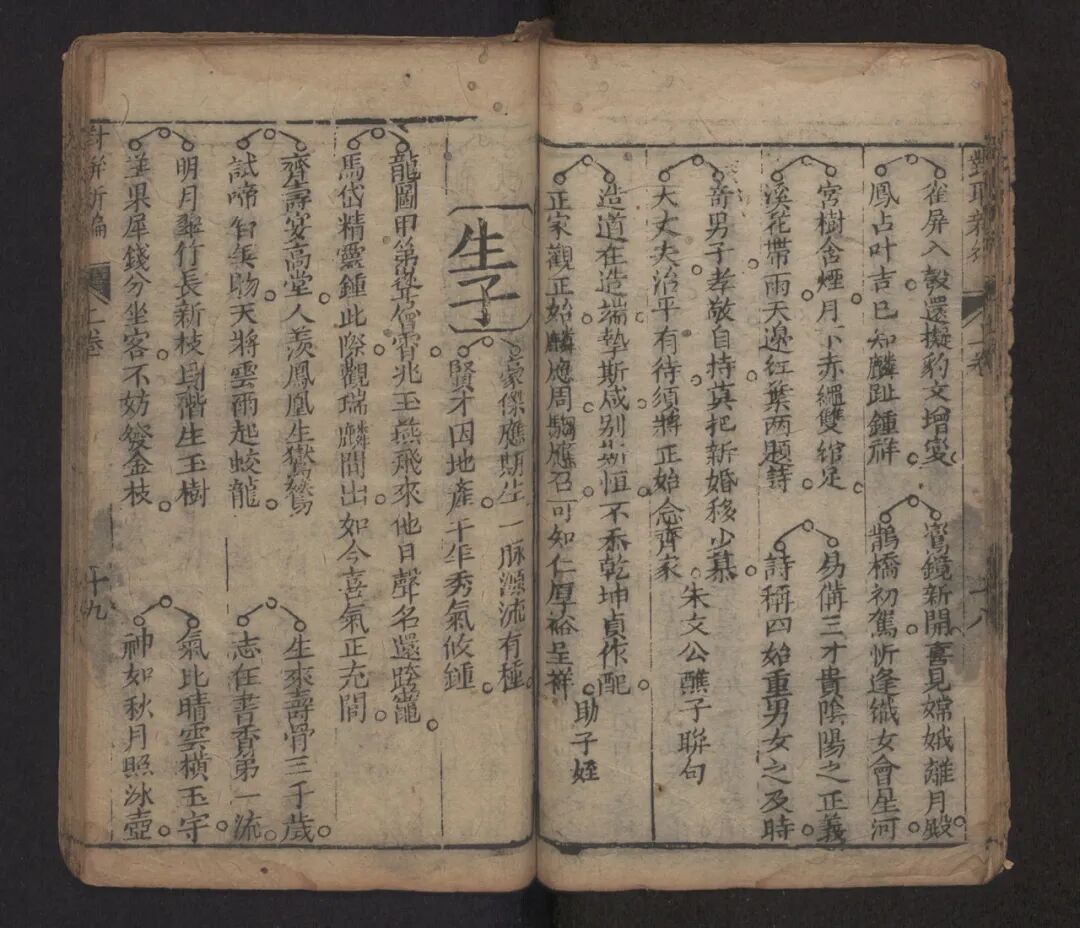 崔屏入彀還擬豹文增変
鳳占叶吉已知麟趾鍾祥
鸞鏡新開喜見嫦娥離月殿
鵲橋初駕忻逢織女會星河
宮樹含煙月下赤繩雙綰足
溪花帶雨天邊红葉两題詩
易備三才貴陰陽之正義
詩稱四始重男女之及時
竒男子孝敬自持真把新婚移少慕
大丈夫治平有待須將正始念齊家
朱文公醮子聯句
造道在造端摯斯咸别斯恒不忝乾坤貞作配
正家觀正始麟應周騶應召可知仁厚裕呈祥
助子姪
十八
生子
豪傑應期生一脉源流有種
賢才因地產千年秀氣攸鍾
龍圖甲第登僧霄兆玉燕飛來他日聲名還跨竈
馬岱精靈鍾此際觀瑞麟間出如今喜氣正充閭
齊壽宴高堂人羡鳳凰生鸑鷟
試啼知隽物天將雲雨起蛟龍
生來壽骨三千歲
志在書香弟一流
明月翠竹長新枝別階生玉樹
羊果犀錢分坐客不妨發金枝
氣比晴雲横玉宇
神如秋月照冰壺
新編 上卷
十九